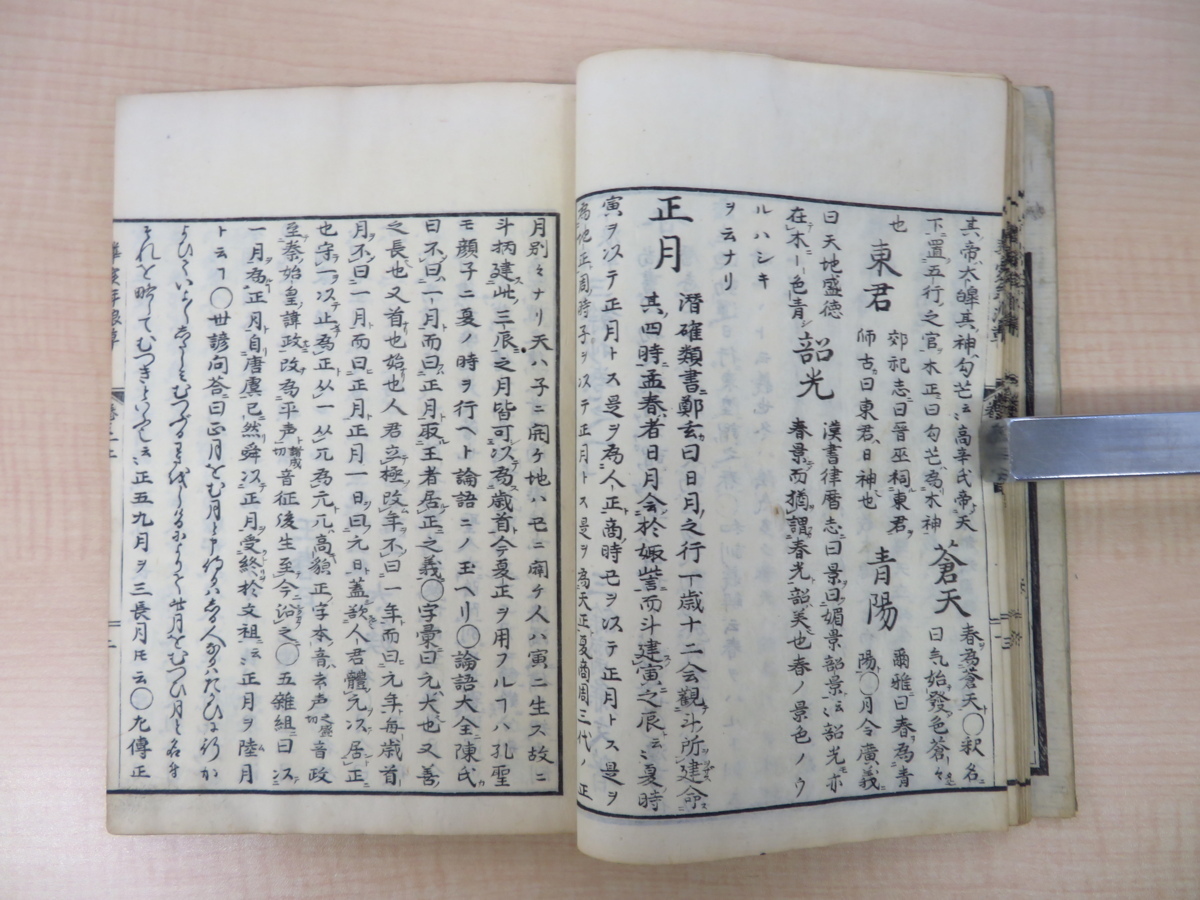 其帝大皞其神勾芒云高辛氏帝天
下置五行之官木正曰勾芒為木神
也
蒼天
春為蒼天〇釈名
曰天气始發色蒼々
東君
郊祀志曰晋巫祠東君
師古曰東君日神也
青陽
爾雅曰春為青
陽〇月令廣義
曰天地盛徳
在木色青
韶光
漢書律暦志曰景曰媚景韶景云韶光亦
春景而猶謂春光韶美也春ノ景色ノウ
ルハシキヿ
ヲ云ナリ
正月
潛確類書鄭玄曰日月之行一歳十二会觀斗所建命
其四時孟春者日月会於娵訾而斗建寅之辰云夏時
寅ヲ以テ正月トス是ヲ為人正商時丑ヲ以テ正月トス是ヲ
為地正周時子ヲ以テ正月トス是ヲ為天正夏商周三代ノ正
月別々ナリ天ハ子ニ開ケ地ハ丑ニ闢ケ人ハ寅ニ生ス故ニ
斗柄建此三辰之月皆可以為歳首今夏正ヲ用フルヿハ孔聖
モ顔子ニ夏ノ時ヲ行ヘト論語ニノ玉ヘリ〇論語大全陳氏
曰不曰一月而曰正月取王者居正之義〇字彙曰元大也又善
之長也又首也始也人君立極改年不曰一年而曰元年毎歳首
月不曰一月而曰正月正月一日曰元日蓋欲人君體元以居正
也守一以止為正从一从兀為元元高額正字本音去声之盛切音政
至秦始皇諱政改為平声諸成切音征後生至今沿之〇五雜組曰以
一月為正月自唐虞已然舜以正月受終於文祖云正月ヲ陸月
トモ云ヿ〇世諺問答曰正月をむ月と
それを略してむつきといふ云正五九月ヲ三長月トモ云〇九傳正